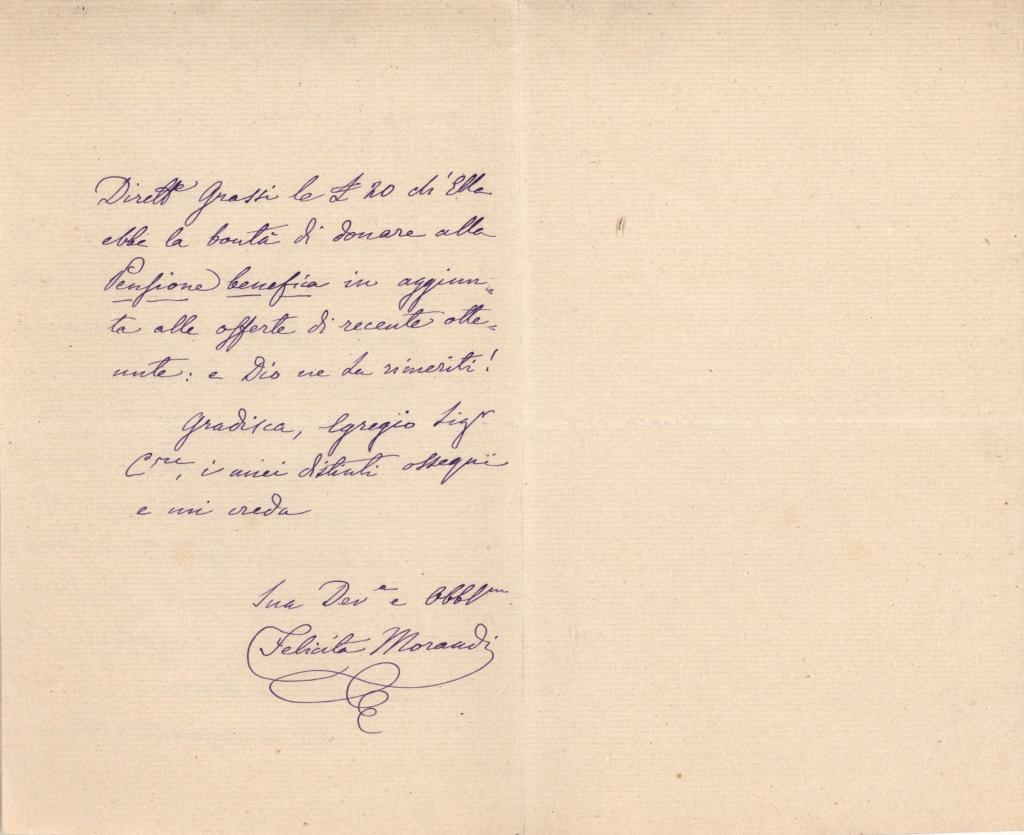 Dirett.e Grassi le £ 20 ch'Ella
ebbe la bontà di donare alla
Pensione benefica in aggiun=
ta alle offerte di recente otte=
nute: e Dio ne La rimeriti!
Gradisca, Egregio Sigr
Cre, i miei distinti ossequi
e mi creda
Sua Deva e Obblma
Felicita Morandi